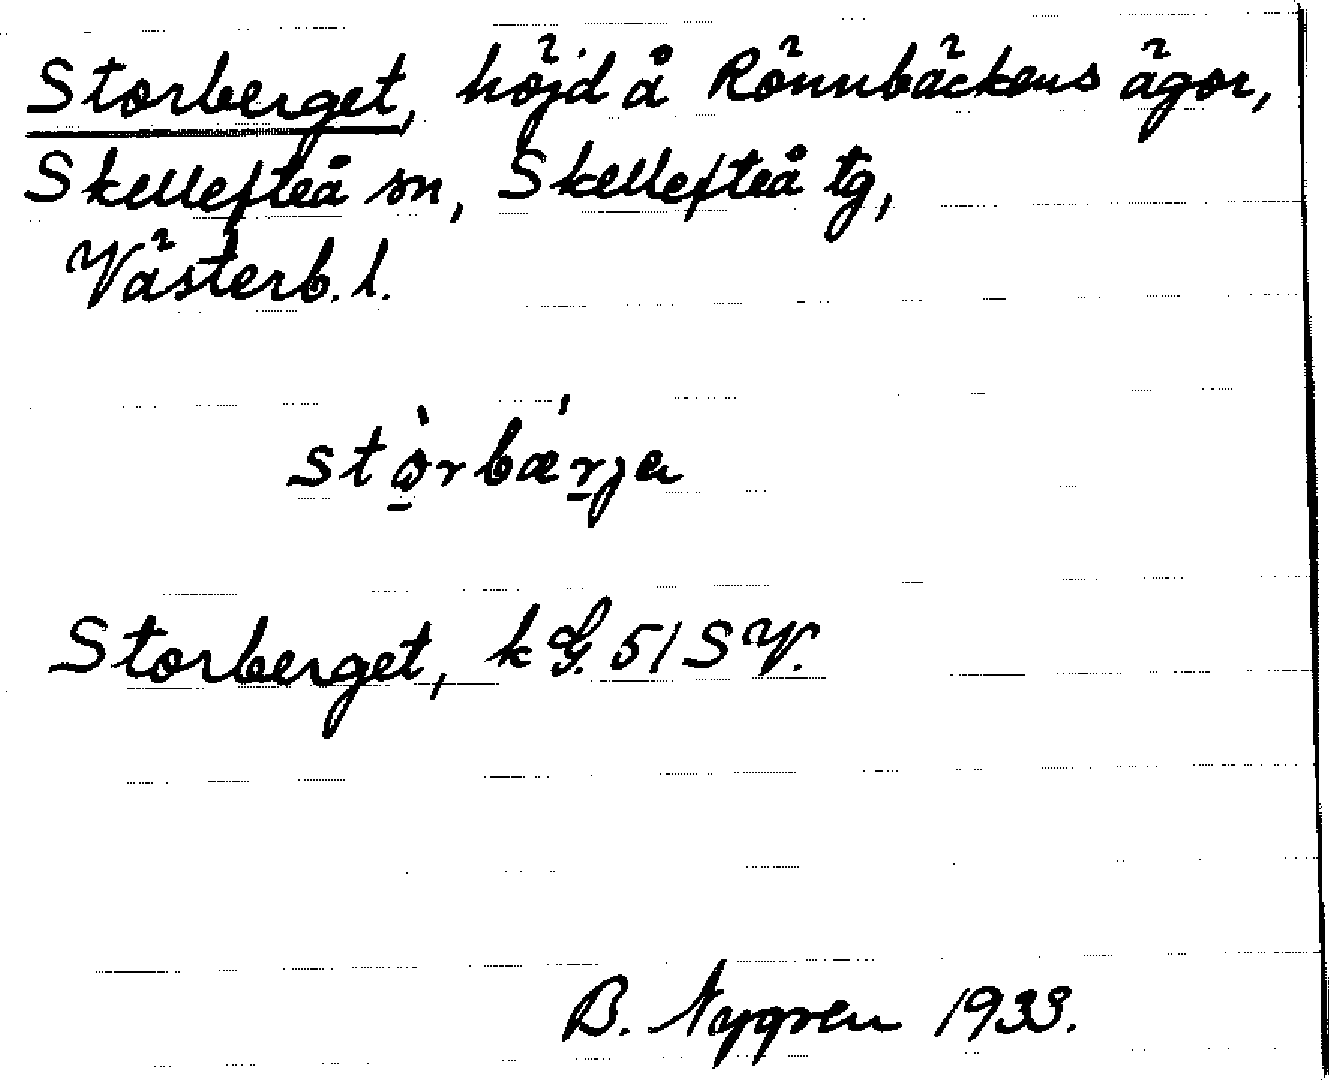 Storberget, höjd å Rönnbäckens ägor,
Skellefteå sn, Skellefteå tg,
Västerb. l.
stò̱rbǽṟja
Storberget, kG. 51 SV.
B. Nygren 1933.